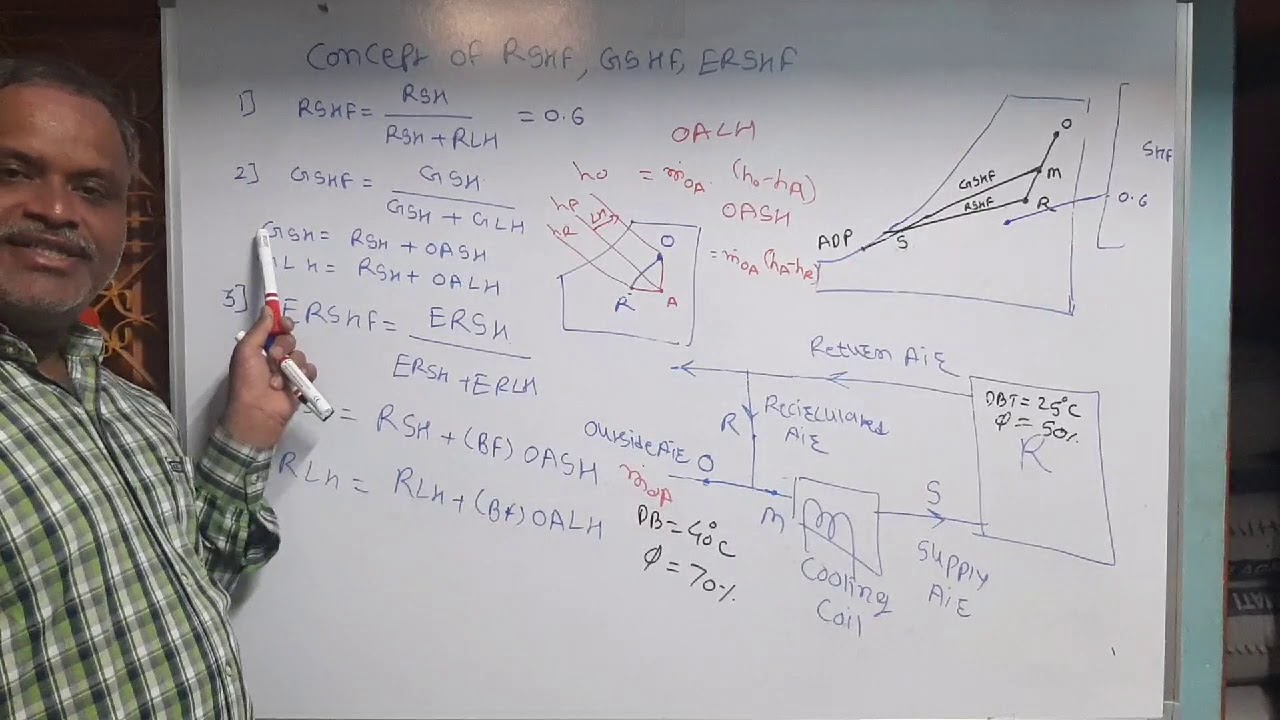 Concept of RSHF, GSHF, ERSHF
1] RSHF = RSH / RSH + RLH = 0.6
2] GSHF = GSH / GSH + GLH
GSH = RSH + OASH
LH = RSH + OALH
3] ERSHF = ERSH / ERSH + ERLH
= RSH + (BF) OASH
RLH = RLH + (BF) OALH
OALH
ho = ṁOA (ho-hA)
OASH
= ṁOA (hA-hR)
hA
hR
O
R
A
O
M
R
S
GSHF
RSHF
ADP
SHF
0.6
Return Air
Recirculated Air
R
Outside Air
O
ṁOA
DB = 40°C
φ = 70%
M
Cooling Coil
S
Supply Air
DBT = 25°C
φ = 50%
R